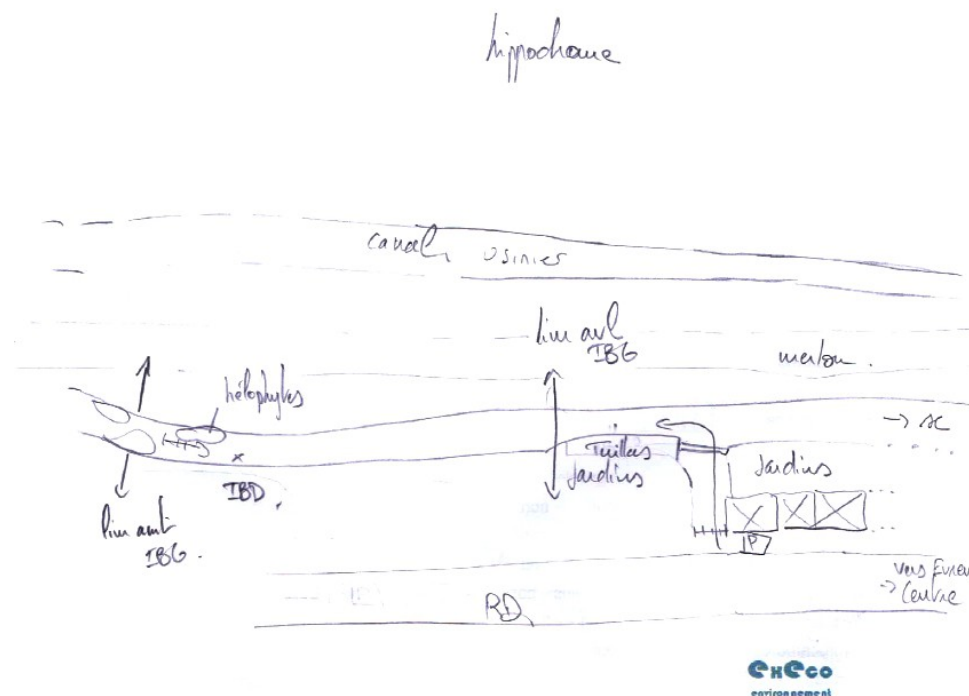 hippodrome
canal usinier
lim avl
IBG
merlon.
hélophytes
→ AC
Tuillas
Jardins
Jardins
IBD
lim amt
IBG.
P
vers Evreux
→ Centre
RD
eHeco
environnement